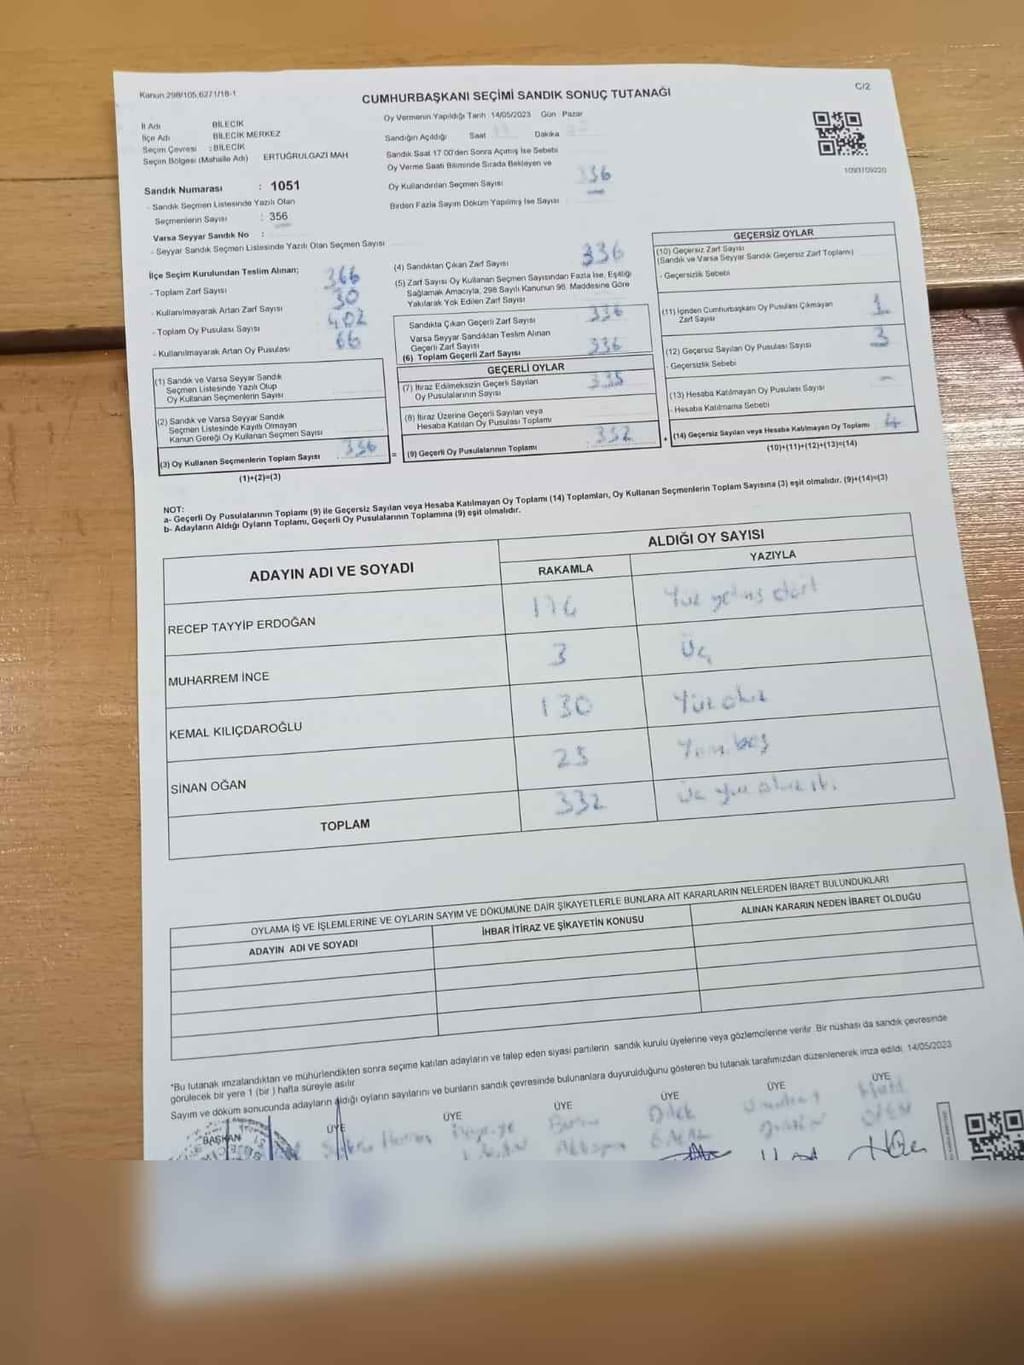 Kanun 298/105,6271/18-1
C/2
CUMHURBAŞKANI SEÇİMİ SANDIK SONUÇ TUTANAĞI
İl Adı BİLECİK
İlçe Adı BİLECİK MERKEZ
Seçim Çevresi : BİLECİK
Seçim Bölgesi (Mahalle Adı) ERTUĞRULGAZİ MAH
Sandık Numarası : 1051
- Sandık Seçmen Listesinde Yazılı Olan
Seçmenlerin Sayısı : 356
Varsa Seyyar Sandık No :
- Seyyar Sandık Seçmen Listesinde Yazılı Olan Seçmen Sayısı
Oy Vermenin Yapıldığı Tarih 14/05/2023 Gün Pazar
Sandığın Açıldığı Saat Dakika
Sandık Saat 17 00'den Sonra Açılmış İse Sebebi
Oy Verme Saati Bitiminde Sırada Bekleyen ve
Oy Kullandırılan Seçmen Sayısı 336
Birden Fazla Sayım Döküm Yapılmış İse Sayısı
1093109220
İlçe Seçim Kurulundan Teslim Alınan;
- Toplam Zarf Sayısı 366
- Kullanılmayarak Artan Zarf Sayısı 30
- Toplam Oy Pusulası Sayısı 402
- Kullanılmayarak Artan Oy Pusulası 66
(1) Sandık ve Varsa Seyyar Sandık
Seçmen Listesinde Yazılı Olup
Oy Kullanan Seçmenlerin Sayısı
(2) Sandık ve Varsa Seyyar Sandık
Seçmen Listesinde Kayıtlı Olmayan
Kanun Gereği Oy Kullanan Seçmen Sayısı
(3) Oy Kullanan Seçmenlerin Toplam Sayısı 336
(1)+(2)=(3)
(4) Sandıktan Çıkan Zarf Sayısı 336
(5) Zarf Sayısı Oy Kullanan Seçmen Sayısından Fazla İse, Eşitliği
Sağlamak Amacıyla, 298 Sayılı Kanunun 98. Maddesine Göre
Yakılarak Yok Edilen Zarf Sayısı
Sandıkta Çıkan Geçerli Zarf Sayısı 336
Varsa Seyyar Sandıktan Teslim Alınan
Geçerli Zarf Sayısı
(6) Toplam Geçerli Zarf Sayısı 336
GEÇERLİ OYLAR
(7) İtiraz Edilmeksizin Geçerli Sayılan
Oy Pusulalarının Sayısı
(8) İtiraz Üzerine Geçerli Sayılan veya
Hesaba Katılan Oy Pusulası Toplamı
= (9) Geçerli Oy Pusulalarının Toplamı 332
GEÇERSİZ OYLAR
(10) Geçersiz Zarf Sayısı
(Sandık ve Varsa Seyyar Sandık Geçersiz Zarf Toplamı)
- Geçersizlik Sebebi
(11) İçinden Cumhurbaşkanı Oy Pusulası Çıkmayan
Zarf Sayısı 1
(12) Geçersiz Sayılan Oy Pusulası Sayısı 3
- Geçersizlik Sebebi
(13) Hesaba Katılmayan Oy Pusulası Sayısı -
- Hesaba Katılmama Sebebi
+ (14) Geçersiz Sayılan veya Hesaba Katılmayan Oy Toplamı 4
(10)+(11)+(12)+(13)=(14)
NOT:
a- Geçerli Oy Pusulalarının Toplamı (9) ile Geçersiz Sayılan veya Hesaba Katılmayan Oy Toplamı (14) Toplamları, Oy Kullanan Seçmenlerin Toplam Sayısına (3) eşit olmalıdır. (9)+(14)=(3)
b- Adayların Aldığı Oyların Toplamı, Geçerli Oy Pusulalarının Toplamına (9) eşit olmalıdır.
ADAYIN ADI VE SOYADI
ALDIĞI OY SAYISI
RAKAMLA YAZIYLA
RECEP TAYYİP ERDOĞAN Yüz yetmiş dört
MUHARREM İNCE 3 Üç
KEMAL KILIÇDAROĞLU 130 Yüz otuz
SİNAN OĞAN 25 Yirmi beş
TOPLAM 332 Üç yüz otuz iki
OYLAMA İŞ VE İŞLEMLERİNE VE OYLARIN SAYIM VE DÖKÜMÜNE DAİR ŞİKAYETLERLE BUNLARA AİT KARARLARIN NELERDEN İBARET BULUNDUKLARI
ADAYIN ADI VE SOYADI İHBAR İTİRAZ VE ŞİKAYETİN KONUSU ALINAN KARARIN NEDEN İBARET OLDUĞU
*Bu tutanak imzalandıktan ve mühürlendikten sonra seçime katılan adayların ve talep eden siyasi partilerin sandık kurulu üyelerine veya gözlemcilerine verilir. Bir nüshası da sandık çevresinde
görülecek bir yere 1 (bir ) hafta süreyle asılır
Sayım ve döküm sonucunda adayların aldığı oyların sayılarını ve bunların sandık çevresinde bulunanlara duyurulduğunu gösteren bu tutanak tarafımızdan düzenlenerek imza edildi. 14/05/2023
BAŞKAN ÜYE ÜYE ÜYE ÜYE ÜYE ÜYE
Dilek